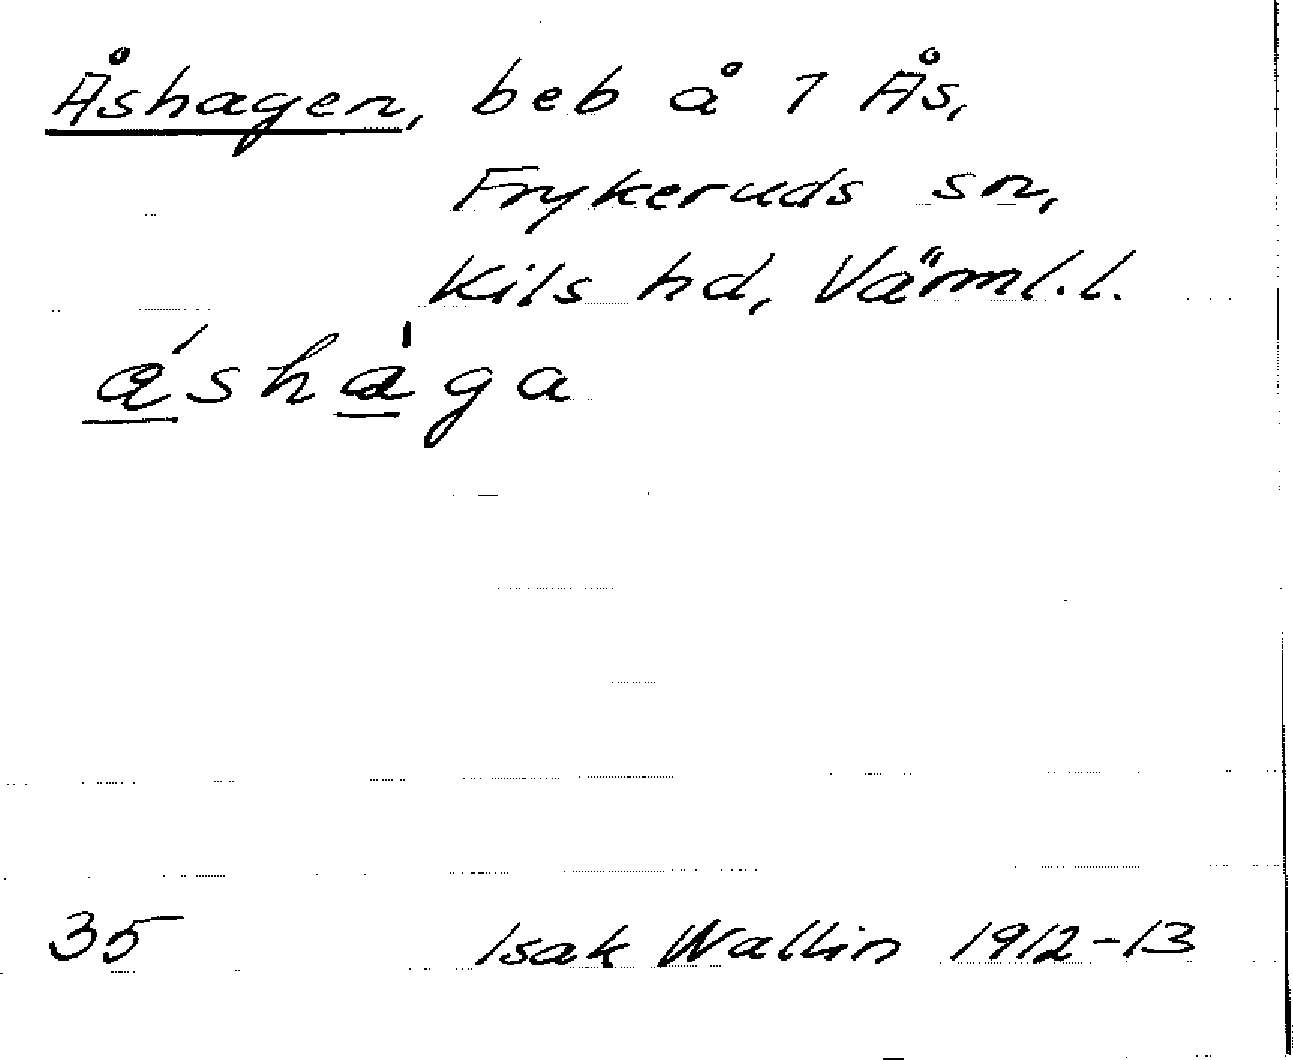 Åshagen, beb å 1 Ås,
Frykeruds sn,
Kils hd, Värml.l.
á̲sha̲̍ga
35 Isak Wallin 1912-13